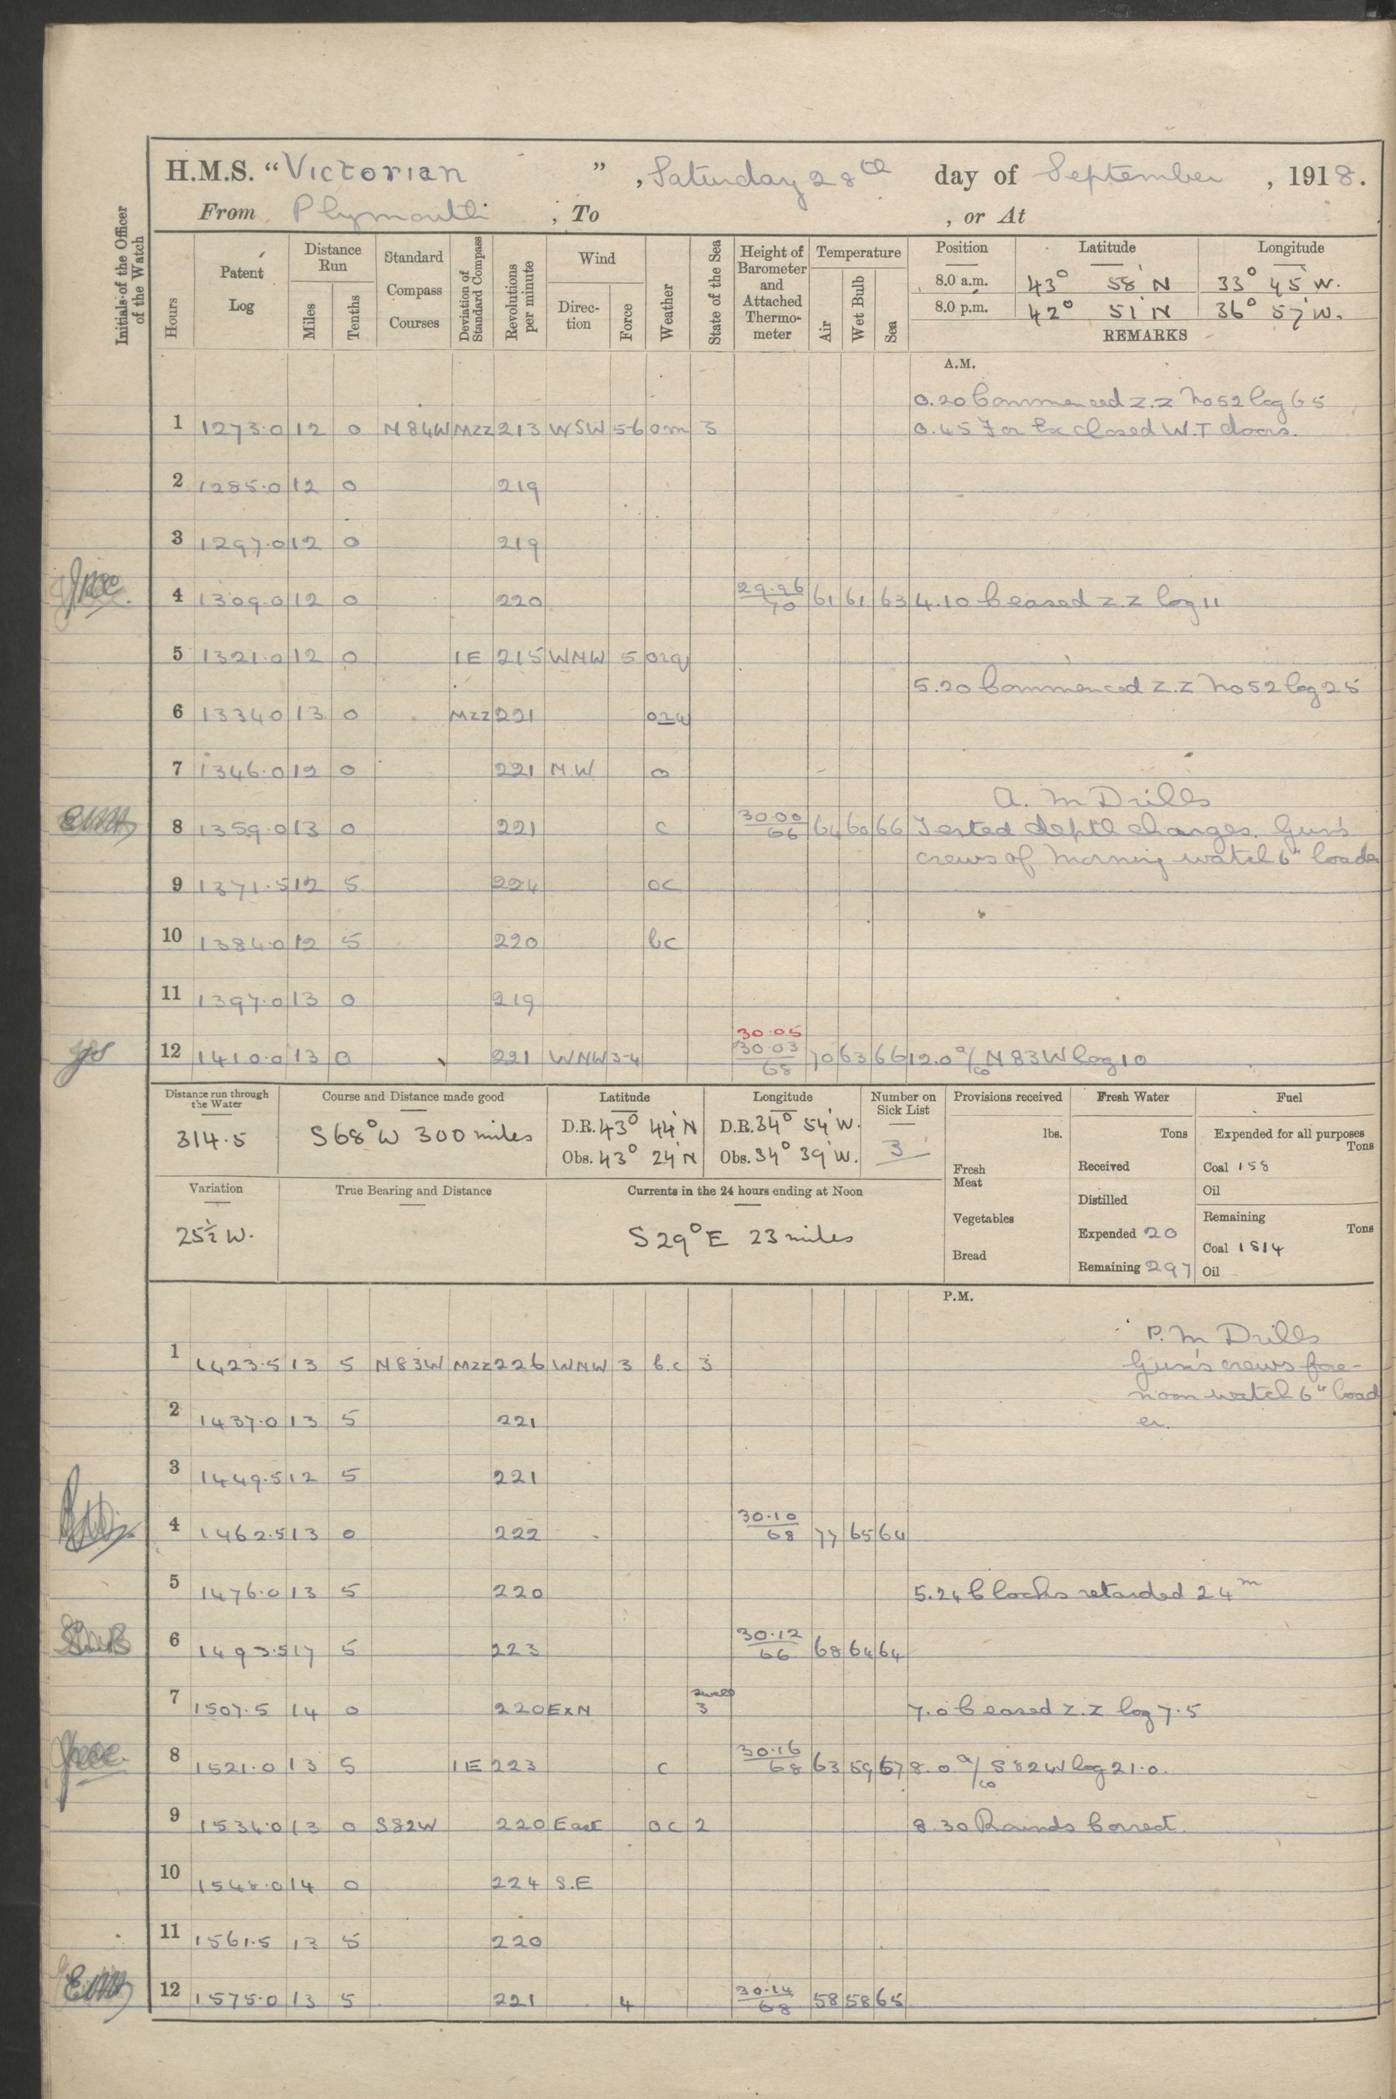 H.M.S. "Victorian", Saturday 28th day of September, 1918.
From Plymouth, To , or At
Initials of the Officer of the Watch
Hours
Patent Log
Distance Run
Miles
Tenths
Standard Compass Courses
Deviation of Standard Compass
Revolutions per minute
Wind
Direction
Force
Weather
State of the Sea
Height of Barometer and Attached Thermometer
Temperature
Air
Wet Bulb
Sea
Position Latitude Longitude
8.0 a.m. 43° 58' N 33° 45' W.
8.0 p.m. 42° 51' N 36° 57' W.
REMARKS
A.M.
0.20 Commenced Z.Z No 52 log 65
1 1273.0 12 0 N84W MZZ 213 WSW 5-6 om 3 0.45 For Ex closed W.T doors.
2 1285.0 12 0 219
3 1297.0 12 0 219
4 1309.0 12 0 220 29.96 70 61 61 63 4.10 Ceased Z.Z log 11
5 1321.0 12 0 1E 215 WNW 5 orq
5.20 Commenced Z.Z No 52 log 25
6 1334.0 13 0 MZZ 221
7 1346.0 12 0 221 N.W o
A.M Drills
8 1359.0 13 0 221 c 30.00 66 64 60 66 Tested depth charges. Gun's
crews of Morning watch 6" loader
9 1371.5 12 5 224 oc
10 1384.0 12 5 220 bc
11 1397.0 13 0 219
30.05
12 1410.0 13 0 221 WNW 3-4 30.03 68 70 63 66 12.0 a/co N83W log 10
Distance run through the Water
314.5
Course and Distance made good
S68°W 300 miles
Latitude
D.R. 43° 44' N
Obs. 43° 24' N
Longitude
D.R. 34° 54' W.
Obs. 34° 39' W.
Number on Sick List
3
Provisions received
lbs.
Fresh Meat
Vegetables
Bread
Fresh Water
Tons
Received
Distilled
Expended 20
Remaining 297
Fuel
Expended for all purposes
Tons
Coal 158
Oil
Remaining
Tons
Coal 1814
Oil
Variation
25½ W.
True Bearing and Distance
Currents in the 24 hours ending at Noon
S29°E 23 miles
P.M.
P.M Drills
1 1423.5 13 5 N83W MZZ 226 WNW 3 b.c 3 Gun's crews fore-
noon watch 6" load
2 1437.0 13 5 221 er.
3 1449.5 12 5 221
4 1462.5 13 0 222 30.10 68 77 65 64
5 1476.0 13 5 220 5.24 Clocks retarded 24m
6 1493.5 17 5 223 30.12 66 68 64 64
7 1507.5 14 0 220 ExN swell 3 7.0 Ceased Z.Z log 7.5
8 1521.0 13 5 1E 223 c 30.16 68 63 59 67 8.0 a/co S82W log 21.0.
9 1534.0 13 0 S82W 220 East oc 2 8.30 Rounds Correct.
10 1548.0 14 0 224 S.E
11 1561.5 13 5 220
12 1575.0 13 5 221 4 30.14 68 58 58 65